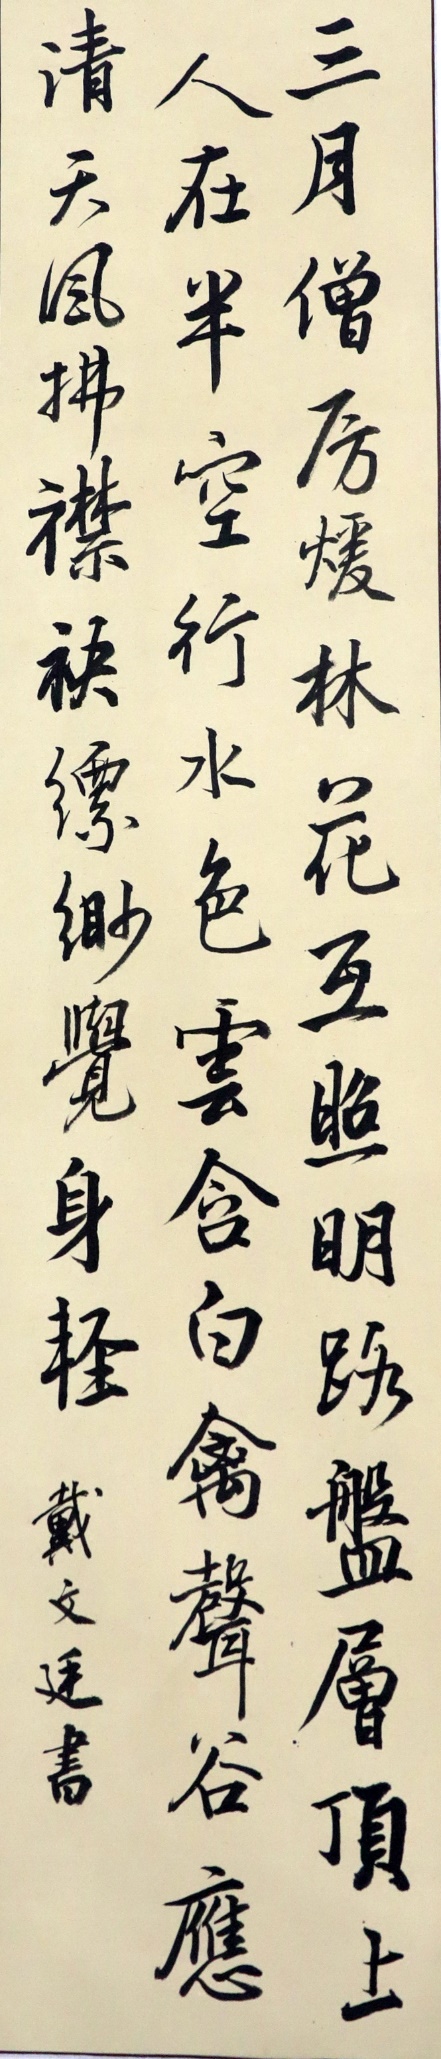 三月僧房煖林花互照明路盤層頂上
人在半空行水色雲含白禽聲谷應
清天風拂襟袂縹緲覺身輕
戴文廷書